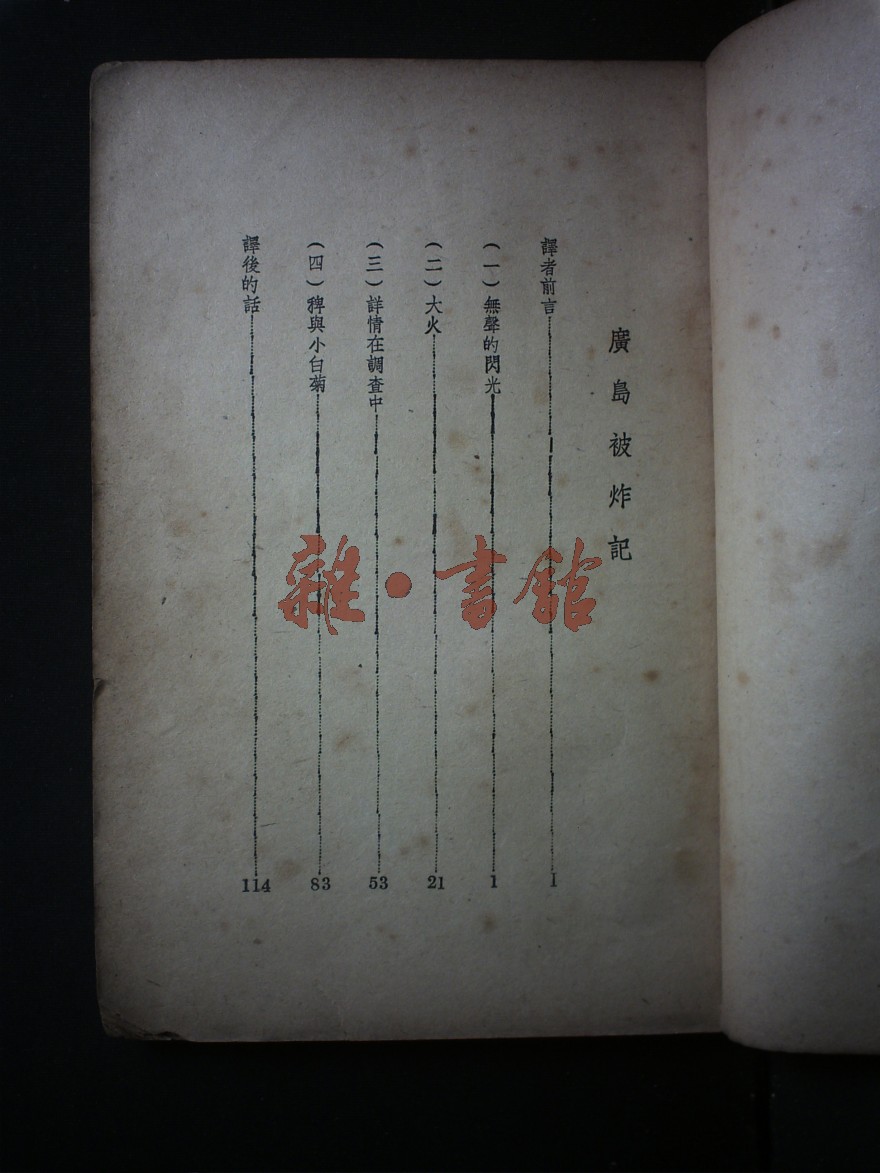 廣島被炸記
譯者前言 I
(一)無聲的閃光 1
(二)大火 21
(三)詳情在調查中 53
(四)稗與小白菊 83
譯後的話 114
雜·書館